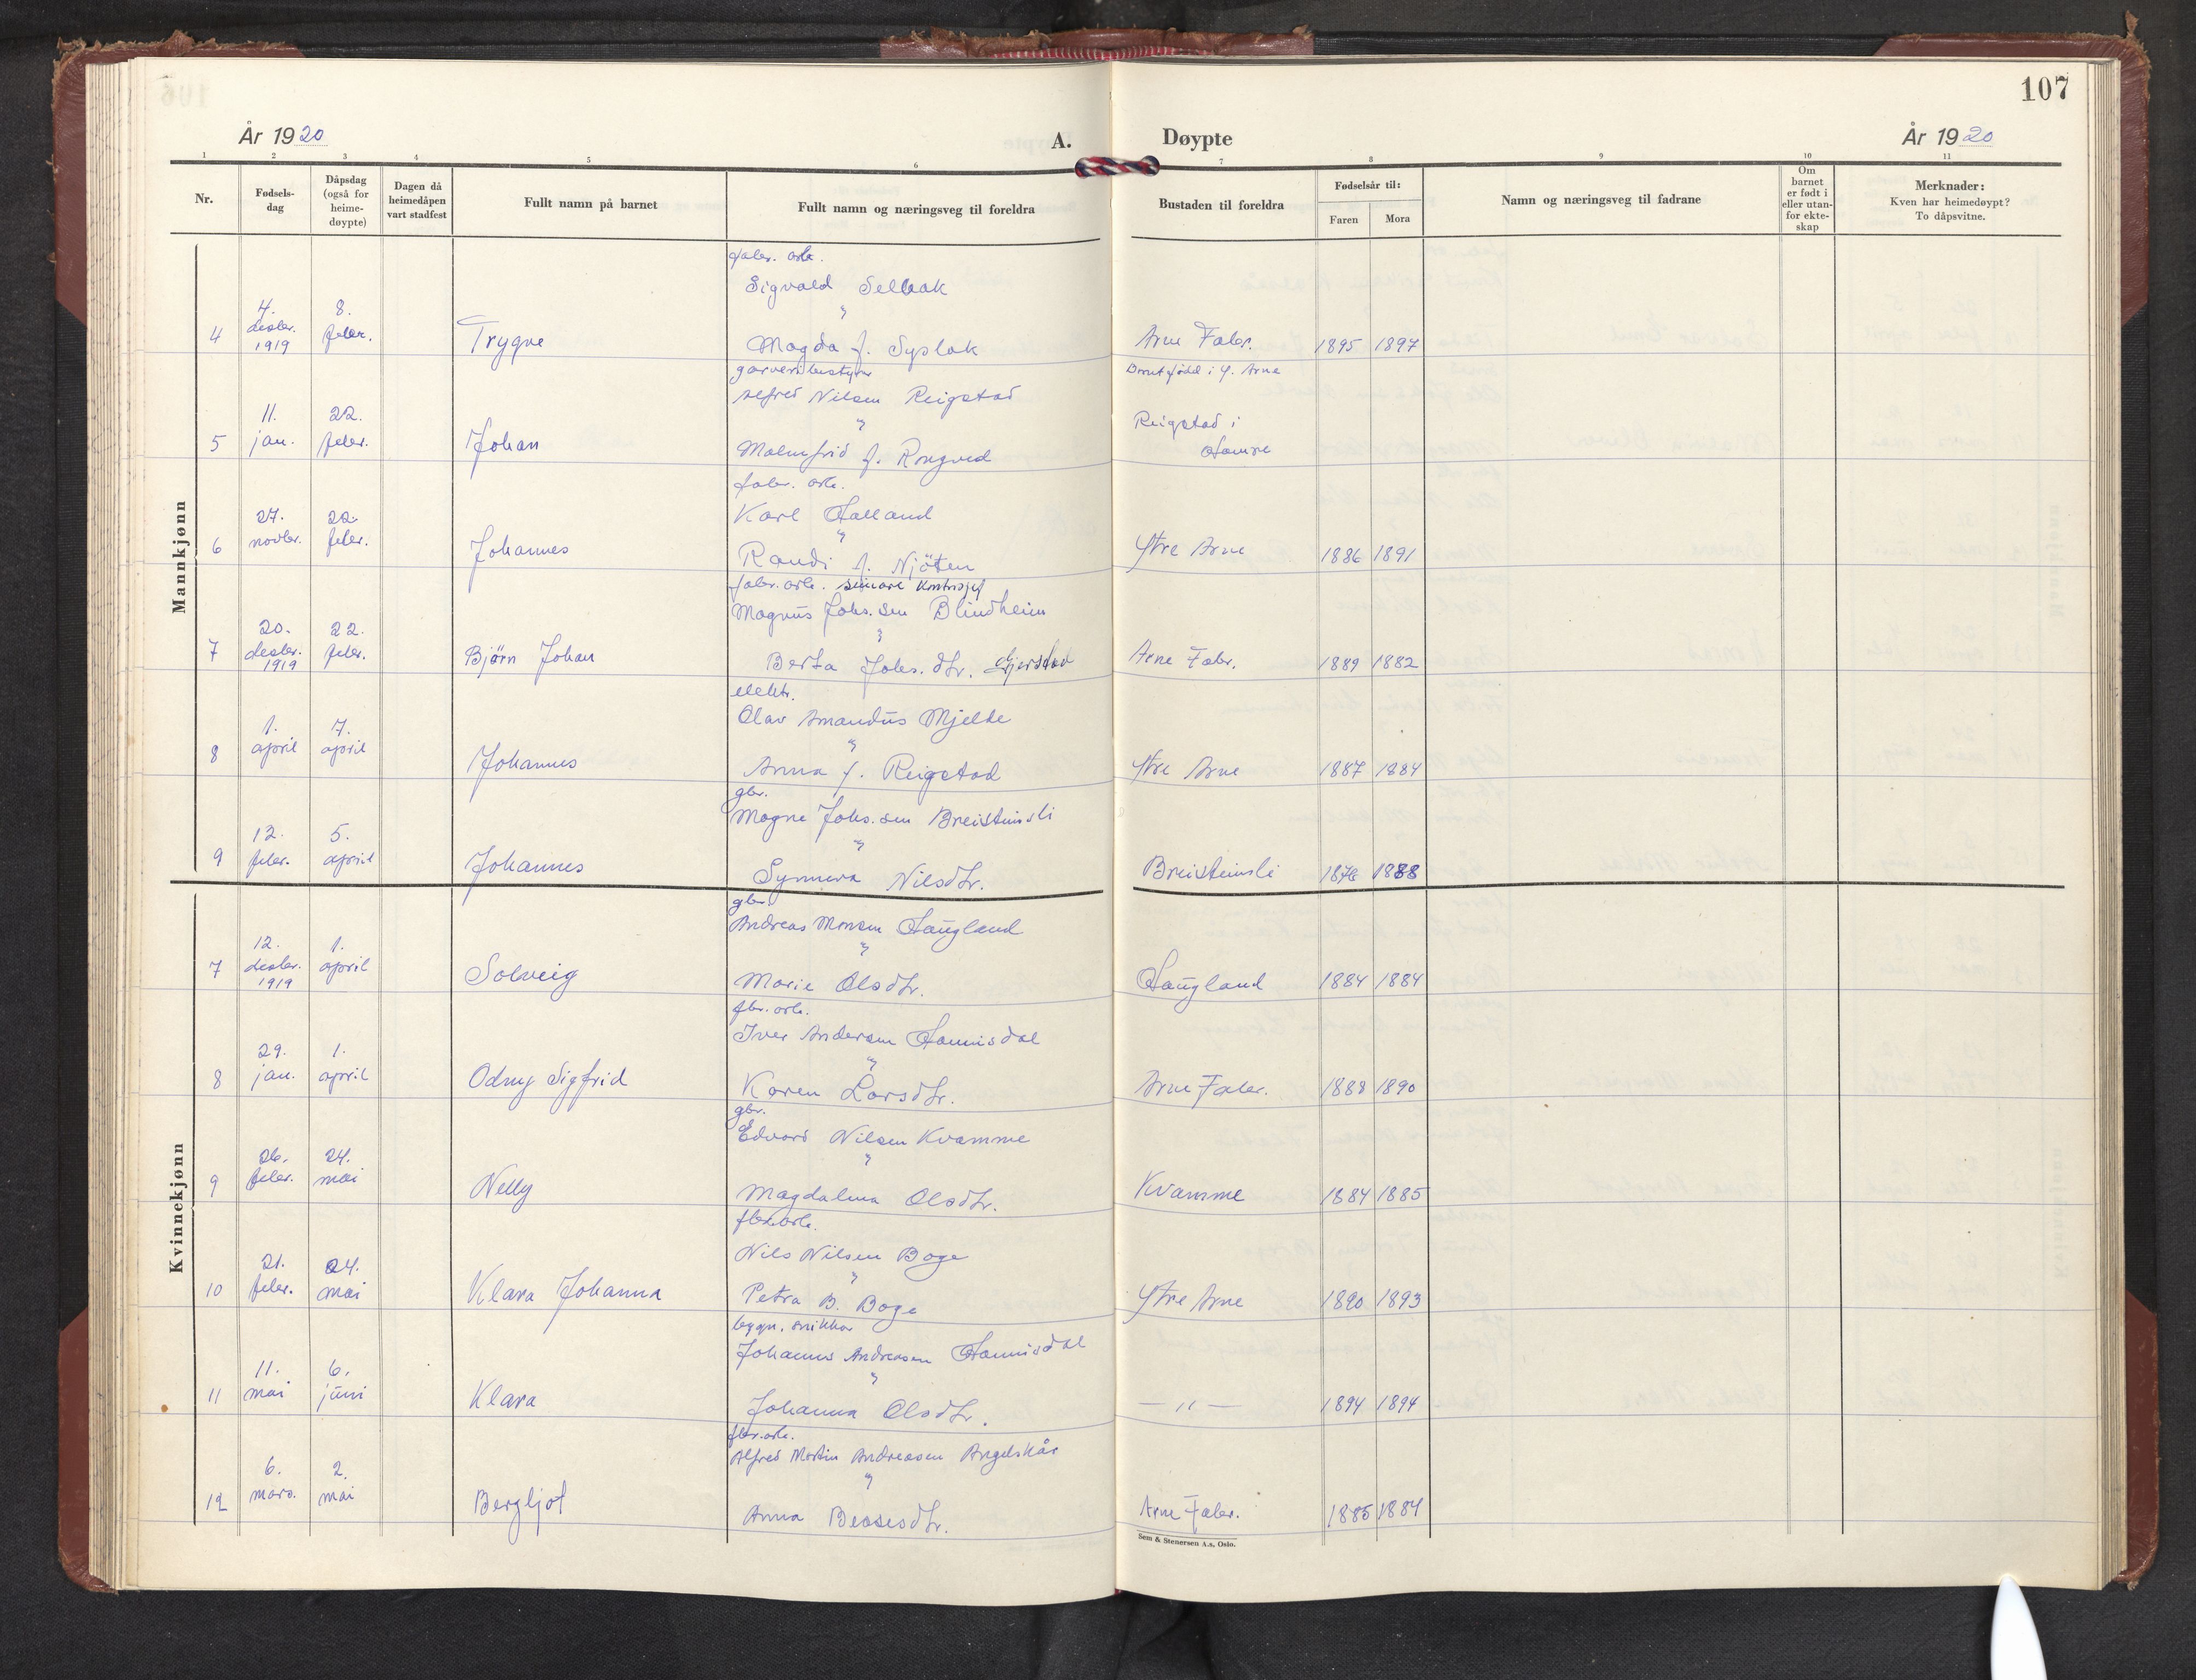 107
År 1920
A.
Døypte
År 1920
1 2 3 4 5 6 7 8 9 10 11
Nr.
Fødsels-
dag
Dåpsdag
(også for
heime-
døypte)
Dagen då
heimedåpen
vart stadfest
Fullt namn på barnet
Fullt namn og næringsveg til foreldra
Bustaden til foreldra
Fødselsår til:
Faren Mora
Namn og næringsveg til fadrane
Om
barnet
er født i
eller utan-
for ekte-
skap
Merknader:
Kven har heimedøypt?
To dåpsvitne.
Mannkjønn
fabr. arb.
Sigvald Selbak
"
4 4. desbr. 1919 8. febr. Trygve Magda f. Syslak Arne Fabr. 1895 1897
garveribestyrer
Alfred Nilsen Reigstad
Barnet född i Y. Arne
"
5 11. jan. 22. febr. Johan Malmfrid f. Rongved Reigstad i
Hamre
fabr. arb.
Karl Halland
"
6 27. novbr. 22. febr. Johannes Randi f. Njöten Ytre Arne 1886 1891
fabr. arb. seinare
Magnus Johs.sen Blindheim
"
7 20. desbr. 1919 22. febr. Bjørn Johan Berta Johs.dtr. Gjerstad Arne Fabr. 1889 1882
elektr.
Olav Amandus Mjelde
"
8 1. april 7. april Johannes Anna f. Reigstad Ytre Arne 1887 1884
gbr.
Magne Johs.sen Breisteinsli
"
9 12. febr. 5. april Johannes Synneva Nilsdtr. Breisteinsli 1876 1888
Kvinnekjønn
gbr.
Andreas Monsen Haugland
"
7 12. desbr. 1919 1. april Solveig Marie Olsdtr. Haugland 1884 1884
fbr. arb.
Iver Andersen Hannisdal
"
8 29. jan. 1. april Odny Sigfrid Karen Larsdtr. Arne Fabr. 1888 1890
gbr.
Edvard Nilsen Kvamme
"
9 26. febr. 24. mai Nelly Magdalena Olsdtr. Kvamme 1884 1885
fbr. arb.
Nils Nilsen Boge
"
10 21. febr. 24. mai Klara Johanna Petra B. Boge Ytre Arne 1890 1893
bygn. snikkar
Johannes Andreasen Hannisdal
"
11 11. mai 6. juni Klara Johanna Olsdtr. — " — 1894 1894
fbr. arb.
Alfred Martin Andreasen Angelskår
"
12 6. mars. 2. mai Bergljot Anna Beasesdtr. Arne Fabr. 1885 1884
Sem & Stenersen A.s, Oslo.